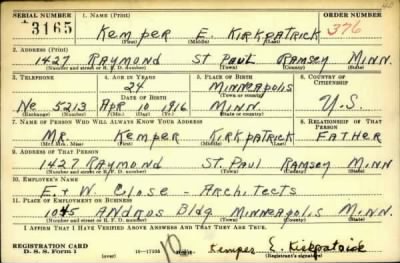 SERIAL NUMBER 1. NAME (Print) ORDER NUMBER
3165 Kemper E. Kirkpatrick 376
(First) (Middle) (Last)
2. ADDRESS (Print)
1427 Raymond St Paul Ramsey Minn.
(Number and street or R. F. D. number) (Town) (County) (State)
3. TELEPHONE 4. AGE IN YEARS 5. PLACE OF BIRTH 6. COUNTRY OF CITIZENSHIP
24 Minneapolis
DATE OF BIRTH (Town or county)
Ne 5213 Apr 10 1916 Minn. U.S.
(Exchange) (Number) (Mo.) (Day) (Yr.) (State or country)
7. NAME OF PERSON WHO WILL ALWAYS KNOW YOUR ADDRESS 8. RELATIONSHIP OF THAT PERSON
Mr. Kemper Kirkpatrick Father
(Mr., Mrs., Miss) (First) (Middle) (Last)
9. ADDRESS OF THAT PERSON
1427 Raymond St. Paul Ramsey Minn
(Number and street or R. F. D. number) (Town) (County) (State)
10. EMPLOYER'S NAME
E. + W. Close - Architects
11. PLACE OF EMPLOYMENT OR BUSINESS
1045 Andrus Bldg Minneapolis Minn.
(Number and street or R. F. D. number) (Town) (County) (State)
I AFFIRM THAT I HAVE VERIFIED ABOVE ANSWERS AND THAT THEY ARE TRUE.
REGISTRATION CARD
D. S. S. Form 1 (over) 10 Kemper E. Kirkpatrick
(Registrant's signature)